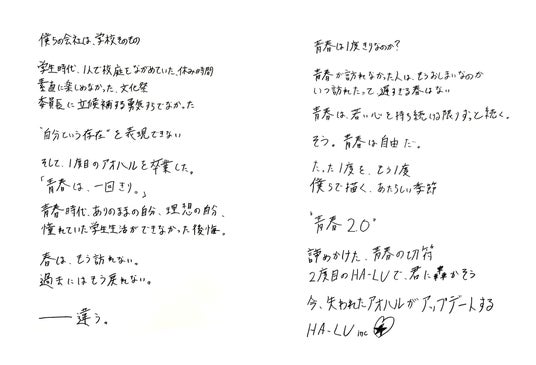 僕らの会社は、学校そのもの
学生時代、1人で校庭をながめていた、休み時間
素直に楽しめなかった、文化祭
委員長に立候補する勇気すらでなかった
"自分という存在"を表現できない
そして、1度目のアオハルを卒業した。
「青春は、一回きり。」
青春時代、ありのままの自分、理想の自分、
憧れていた学生生活ができなかった後悔。
春は、もう訪れない。
過去にはもう戻れない。
──違う。
青春は1度きりなのか?
青春が訪れなかった人は、もうおしまいなのか
いつ訪れたって、遅すぎる春はない
青春は、若い心を持ち続ける限りずっと続く。
そう。青春は自由だ。
たった1度を、もう1度
僕らで描く、あたらしい季節
"青春2.0"
諦めかけた、青春の切符
2度目のHA-LUで、君に轟かそう
今、失われたアオハルがアップデートする
HA-LU inc